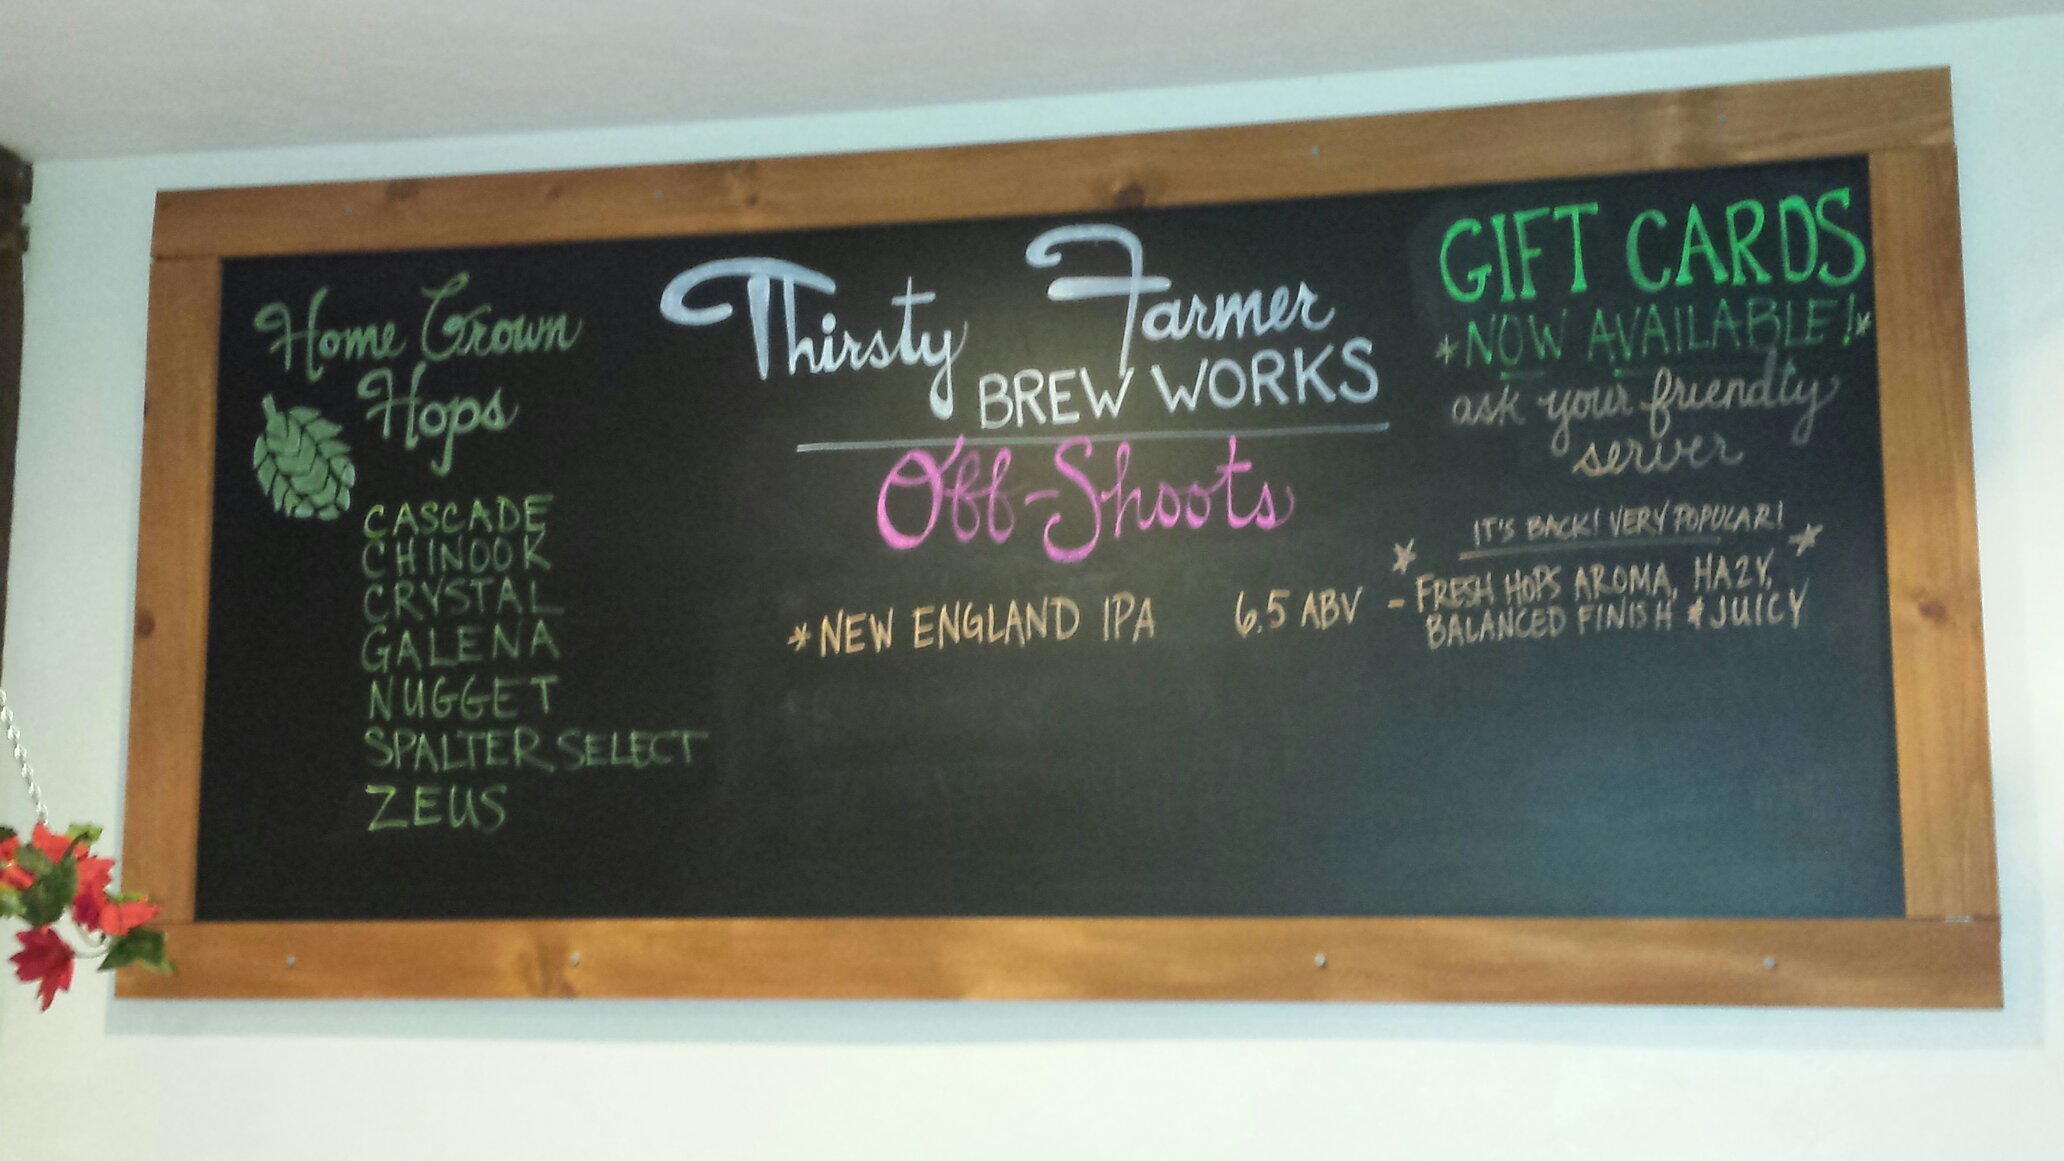 Home Grown
Hops
CASCADE
CHINOOK
CRYSTAL
GALENA
NUGGET
SPALTER SELECT
ZEUS
Thirsty Farmer
BREW WORKS
Off-Shoots
*NEW ENGLAND IPA 6.5 ABV - FRESH HOPS AROMA, HAZY,
BALANCED FINISH & JUICY
GIFT CARDS
*NOW AVAILABLE!*
ask your friendly
server
IT'S BACK! VERY POPULAR!